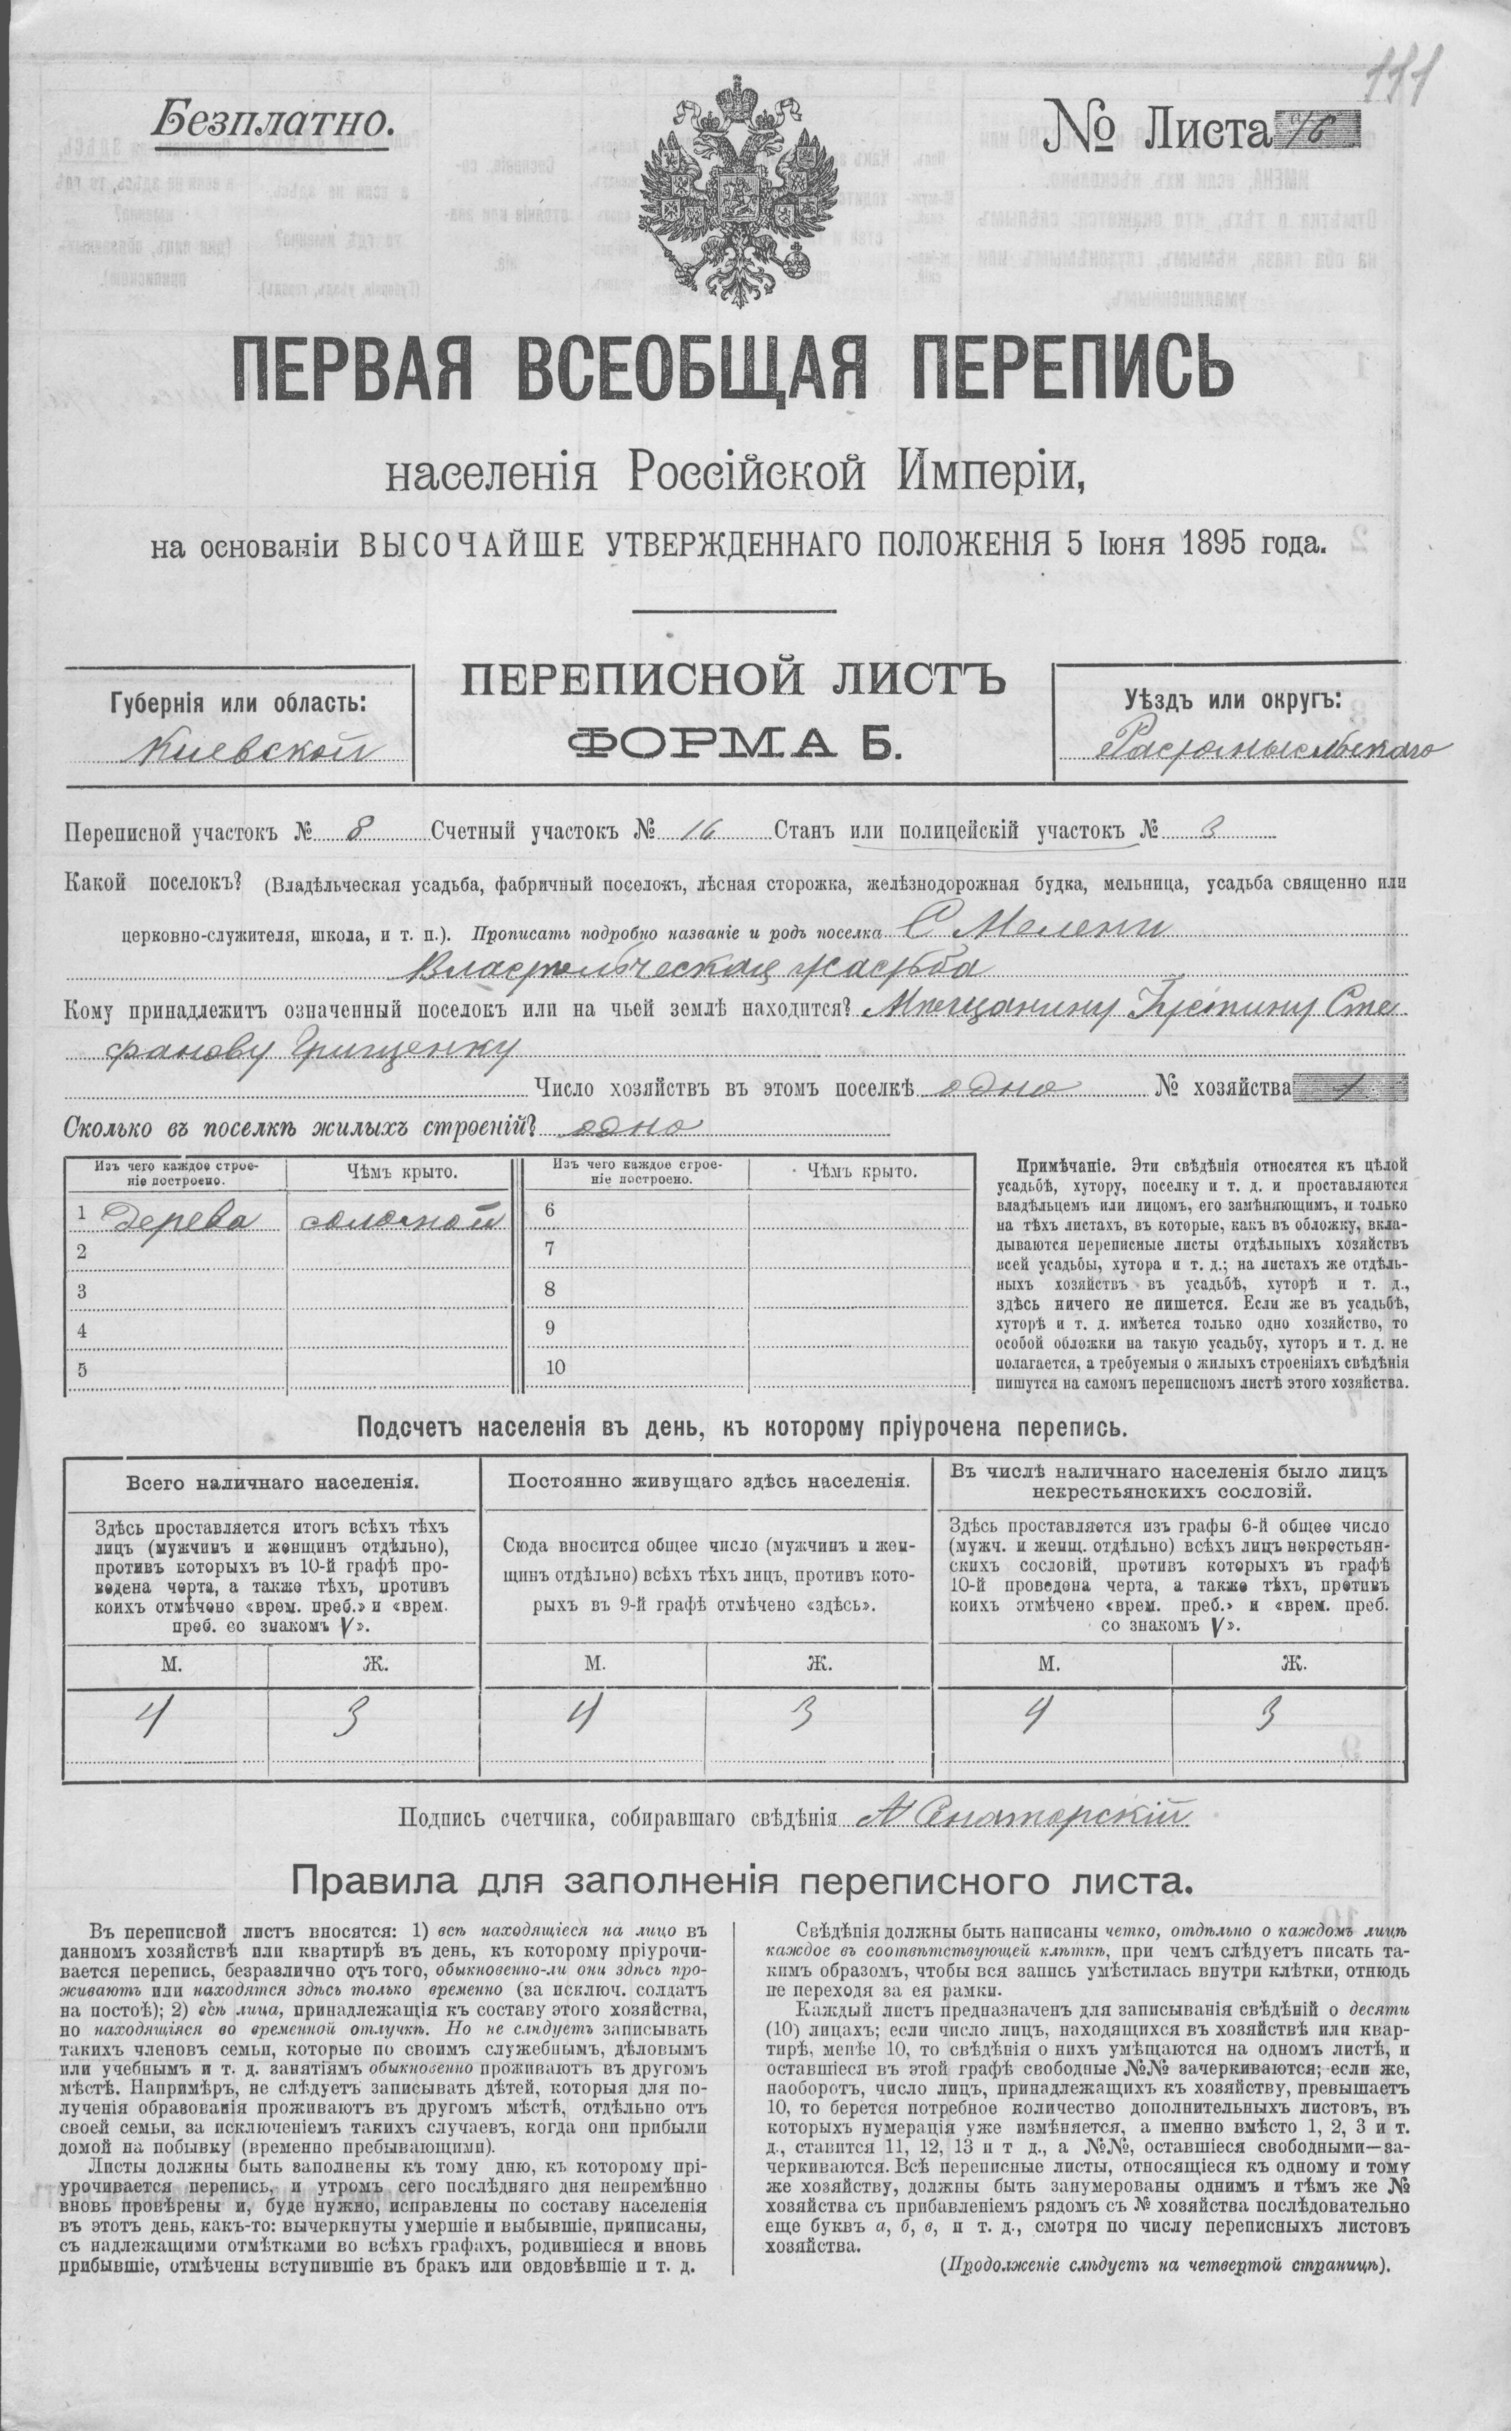 111
Безплатно.
№ Листа 16
ПЕРВАЯ ВСЕОБЩАЯ ПЕРЕПИСЬ
населенія Россійской Имперіи,
на основаніи ВЫСОЧАЙШЕ УТВЕРЖДЕННАГО ПОЛОЖЕНІЯ 5 Іюня 1895 года.
Губернія или область:
Киевской
ПЕРЕПИСНОЙ ЛИСТЪ
ФОРМА Б.
Уѣздъ или округъ:
Радомысльскаго
Переписной участокъ № 8 Счетный участокъ № 16 Станъ или полицейскій участокъ № 3
Какой поселокъ? (Владѣльческая усадьба, фабричный поселокъ, лѣсная сторожка, желѣзнодорожная будка, мельница, усадьба священно или
церковно-служителя, школа, и т. п.). Прописать подробно названіе и родъ поселка С Мелени
Владѣльческая усадьба
Кому принадлежитъ означенный поселокъ или на чьей землѣ находится? Мѣщанину Іустину Сте
фанову Грищенку
Число хозяйствъ въ этомъ поселкѣ одно № хозяйства 1
Сколько въ поселкѣ жилыхъ строеній? одно
Изъ чего каждое строе-
ніе построено.
Чѣмъ крыто.
Изъ чего каждое строе-
ніе построено.
Чѣмъ крыто.
1 Дерева соломой 6
2 7
3 8
4 9
5 10
Примѣчаніе. Эти свѣдѣнія относятся къ цѣлой
усадьбѣ, хутору, поселку и т. д. и проставляются
владѣльцемъ или лицомъ, его замѣняющимъ, и только
на тѣхъ листахъ, въ которые, какъ въ обложку, вкла-
дываются переписные листы отдѣльныхъ хозяйствъ
всей усадьбы, хутора и т. д.; на листахъ же отдѣль-
ныхъ хозяйствъ въ усадьбѣ, хуторѣ и т. д.,
здѣсь ничего не пишется. Если же въ усадьбѣ,
хуторѣ и т. д. имѣется только одно хозяйство, то
особой обложки на такую усадьбу, хуторъ и т. д. не
полагается, а требуемыя о жилыхъ строеніяхъ свѣдѣнія
пишутся на самомъ переписномъ листѣ этого хозяйства.
Подсчетъ населенія въ день, къ которому пріурочена перепись.
Всего наличнаго населенія.
Здѣсь проставляется итогъ всѣхъ тѣхъ
лицъ (мужчинъ и женщинъ отдѣльно),
противъ которыхъ въ 10-й графѣ про-
ведена черта, а также тѣхъ, противъ
коихъ отмѣчено «врем. преб.» и «врем.
преб. со знакомъ V».
Постоянно живущаго здѣсь населенія.
Сюда вносится общее число (мужчинъ и жен-
щинъ отдѣльно) всѣхъ тѣхъ лицъ, противъ кото-
рыхъ въ 9-й графѣ отмѣчено «здѣсь».
Въ числѣ наличнаго населенія было лицъ
некрестьянскихъ сословій.
Здѣсь проставляется изъ графы 6-й общее число
(мужч. и женщ. отдѣльно) всѣхъ лицъ некрестьян-
скихъ сословій, противъ которыхъ въ графѣ
10-й проведена черта, а также тѣхъ, противъ
коихъ отмѣчено «врем. преб.» и «врем. преб.
со знакомъ V».
М. Ж. М. Ж. М. Ж.
4 3 4 3 4 3
Подпись счетчика, собиравшаго свѣдѣнія А Сенаторскій
Правила для заполненія переписного листа.
Въ переписной листъ вносятся: 1) всѣ находящіеся на лицо въ
данномъ хозяйствѣ или квартирѣ въ день, къ которому пріурочи-
вается перепись, безразлично отъ того, обыкновенно-ли они здѣсь про-
живаютъ или находятся здѣсь только временно (за исключ. солдатъ
на постоѣ); 2) всѣ лица, принадлежащія къ составу этого хозяйства,
но находящіяся во временной отлучкѣ. Но не слѣдуетъ записывать
такихъ членовъ семьи, которые по своимъ служебнымъ, дѣловымъ
или учебнымъ и т. д. занятіямъ обыкновенно проживаютъ въ другомъ
мѣстѣ. Напримѣръ, не слѣдуетъ записывать дѣтей, которыя для по-
лученія образованія проживаютъ въ другомъ мѣстѣ, отдѣльно отъ
своей семьи, за исключеніемъ такихъ случаевъ, когда они прибыли
домой на побывку (временно пребывающими).
Листы должны быть заполнены къ тому дню, къ которому прі-
урочивается перепись, и утромъ сего послѣдняго дня непремѣнно
вновь провѣрены и, буде нужно, исправлены по составу населенія
въ этотъ день, какъ-то: вычеркнуты умершіе и выбывшіе, приписаны,
съ надлежащими отмѣтками во всѣхъ графахъ, родившіеся и вновь
прибывшіе, отмѣчены вступившіе въ бракъ или овдовѣвшіе и т. д.
Свѣдѣнія должны быть написаны четко, отдѣльно о каждомъ лицѣ
каждое въ соотвѣтствующей клѣткѣ, при чемъ слѣдуетъ писать та-
кимъ образомъ, чтобы вся запись умѣстилась внутри клѣтки, отнюдь
не переходя за ея рамки.
Каждый листъ предназначенъ для записыванія свѣдѣній о десяти
(10) лицахъ; если число лицъ, находящихся въ хозяйствѣ или квар-
тирѣ, менѣе 10, то свѣдѣнія о нихъ умѣщаются на одномъ листѣ, и
оставшіеся въ этой графѣ свободные №№ зачеркиваются; если же,
наоборотъ, число лицъ, принадлежащихъ къ хозяйству, превышаетъ
10, то берется потребное количество дополнительныхъ листовъ, въ
которыхъ нумерація уже измѣняется, а именно вмѣсто 1, 2, 3 и т.
д., ставится 11, 12, 13 и т д., а №№, оставшіеся свободными—за-
черкиваются. Всѣ переписные листы, относящіеся къ одному и тому
же хозяйству, должны быть занумерованы однимъ и тѣмъ же №
хозяйства съ прибавленіемъ рядомъ съ № хозяйства послѣдовательно
еще буквъ а, б, в, и т. д., смотря по числу переписныхъ листовъ
хозяйства.
(Продолженіе слѣдуетъ на четвертой страницѣ).